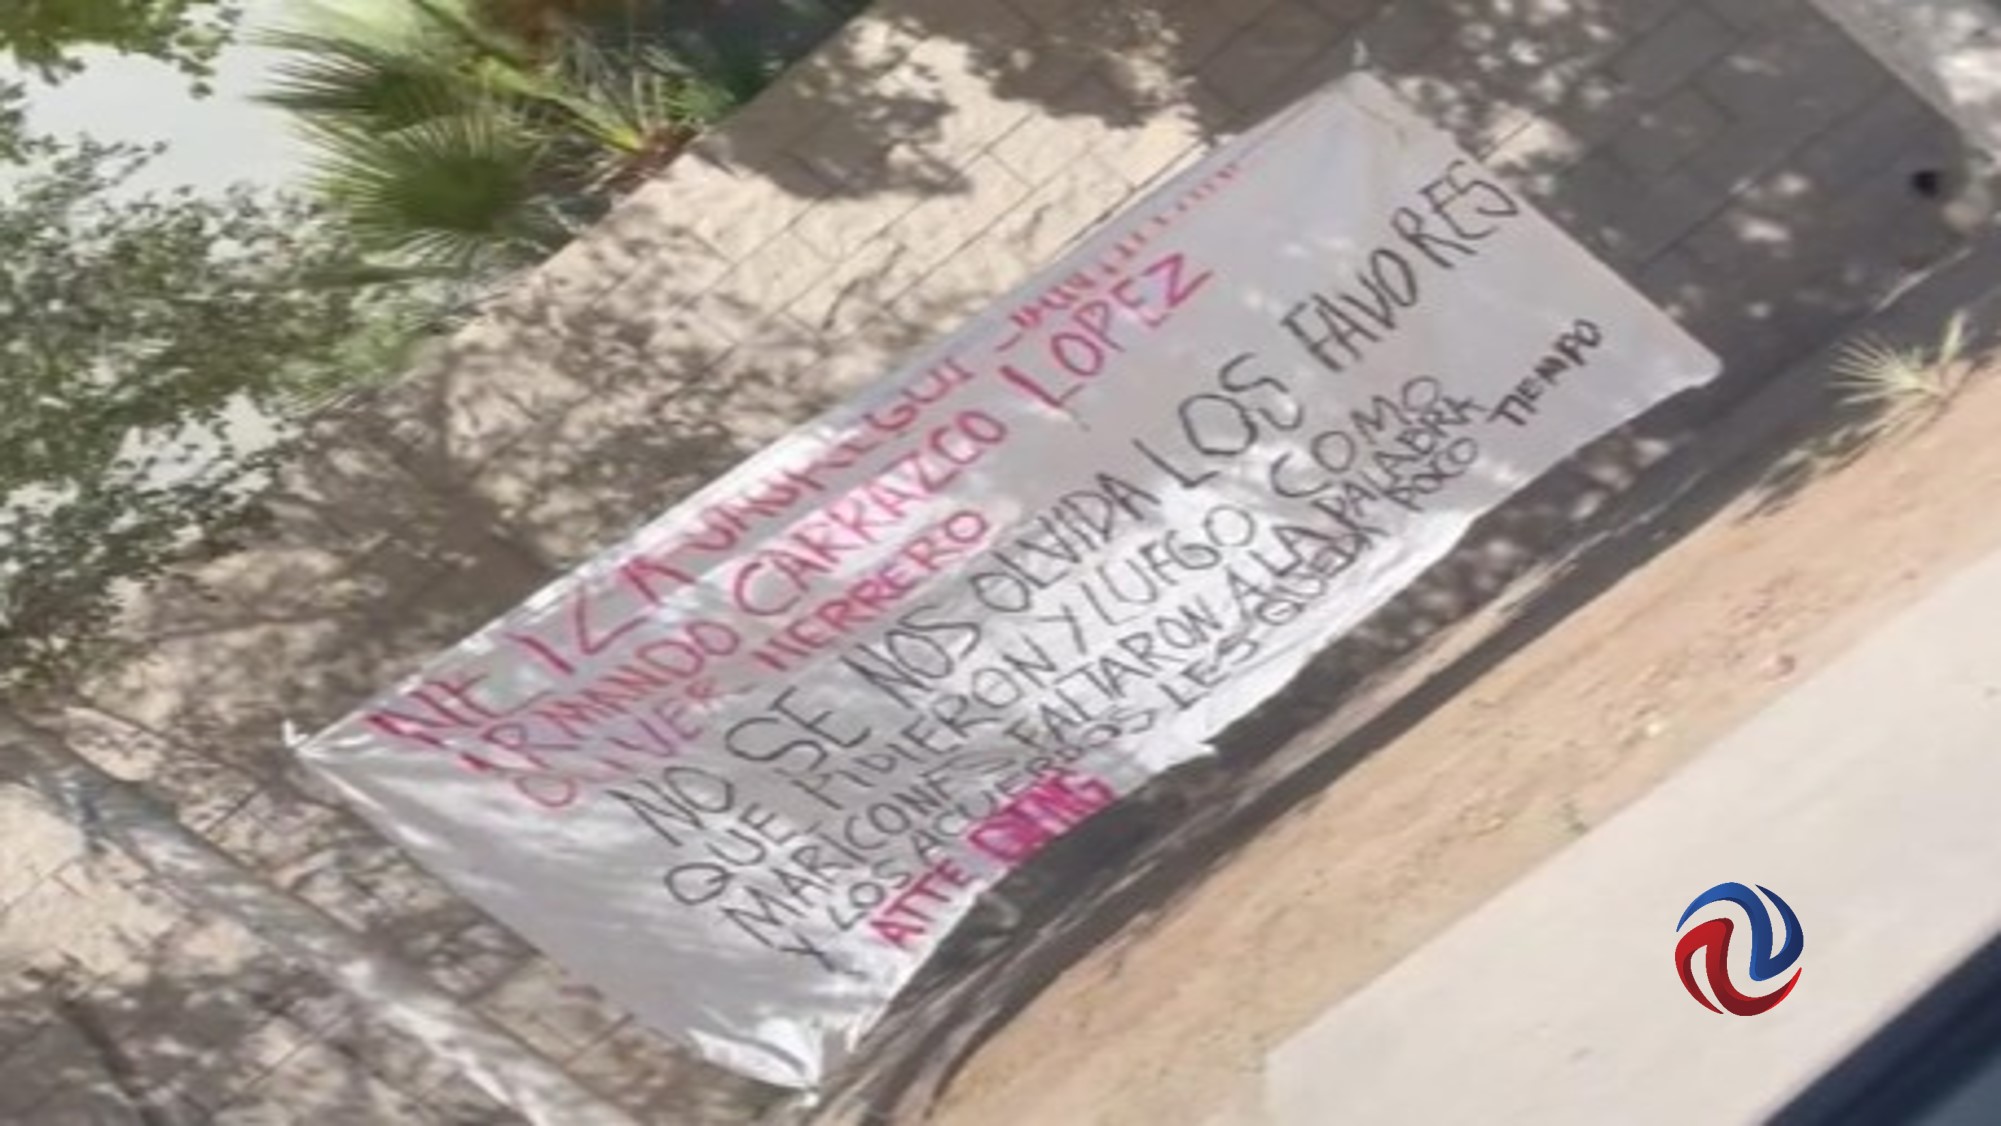 NEIZA JAUREGUI
ARMANDO CARRAZCO LOPEZ
OLIVER HERRERO
NO SE NOS OLVIDA LOS FAVORES
QUE PIDIERON Y LUEGO COMO
MARICONES FALTARON A LA PALABRA
Y LOS ACUERDOS LES QUEDA POCO TIEMPO
ATTE